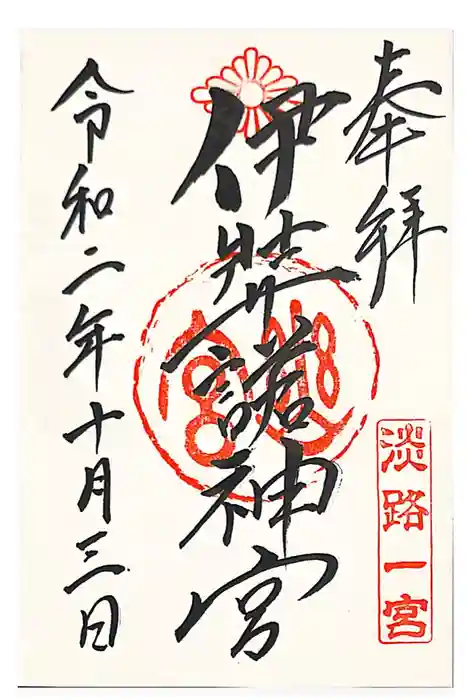 奉拝
淡路一宮
伊弉諾神宮
令和二年十月三日